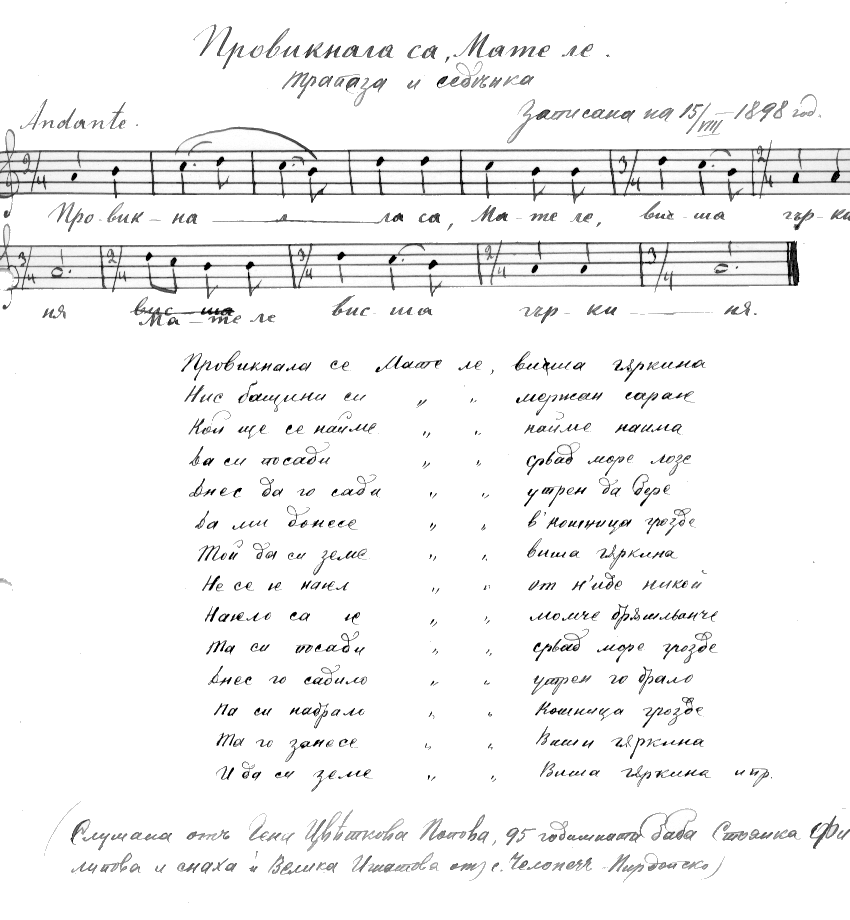 Провикнала са, Мате ле.
трапаза и седенка
Andante.
Записана на 15/VIII 1898 год.
Про-вик-на — а — ла са, Ма-те ле, вис-ша гър-ки
ня Ма-те ле вис-ша гър-ки — ня.
Провикнала се Мате ле, висша гяркина
Нис бащини си „ „ мержан сарае
Кой ще се найме „ „ найме наима
Да си посади „ „ сряад море лозе
Днес да го сади „ „ утрен да бере
Да ми донесе „ „ в'кошница грозде
Той да си земе „ „ виша гяркина
Не се је наел „ „ от н'иде никой
Наело са је „ „ момче бряшлянче
Та си посади „ „ сряад море грозде
Днес го садило „ „ утрен го брало
Па си набрало „ „ Кошница грозде
Та го занесе „ „ Виши гяркина
И да си земе „ „ Виша гяркина и пр.
(Слушана отъ Гени Цвѣткова Попова, 95 годишната баба Стоянка Фи
липова и снаха ѝ Велика Игнатова от с. Челопечъ - Пирдопско)